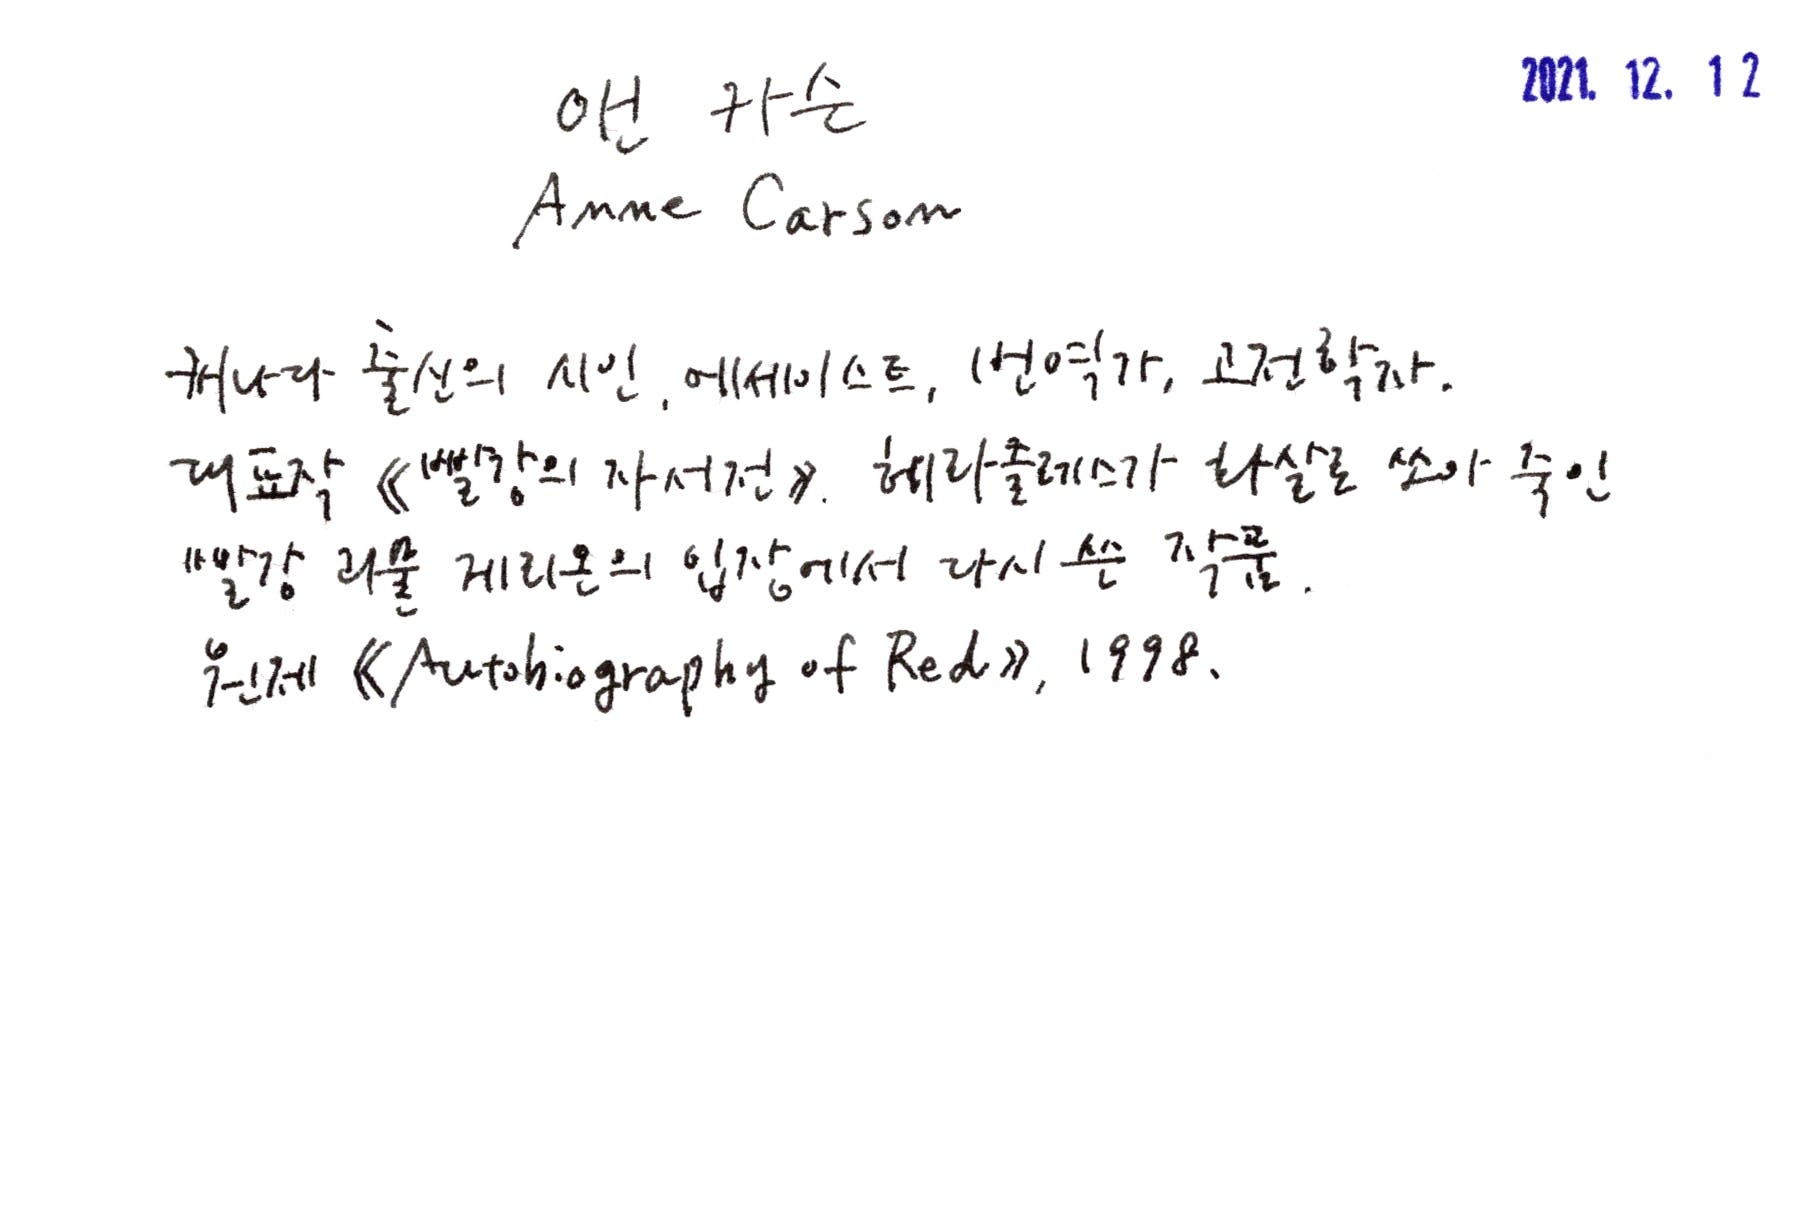 2021. 12. 12
앤 카슨
Anne Carson
캐나다 출신의 시인, 에세이스트, 번역가, 고전학자.
대표작 《빨강의 자서전》. 헤라클레스가 화살로 쏘아 죽인
빨강 괴물 게리온의 입장에서 다시 쓴 작품.
원제 《Autobiography of Red》, 1998.